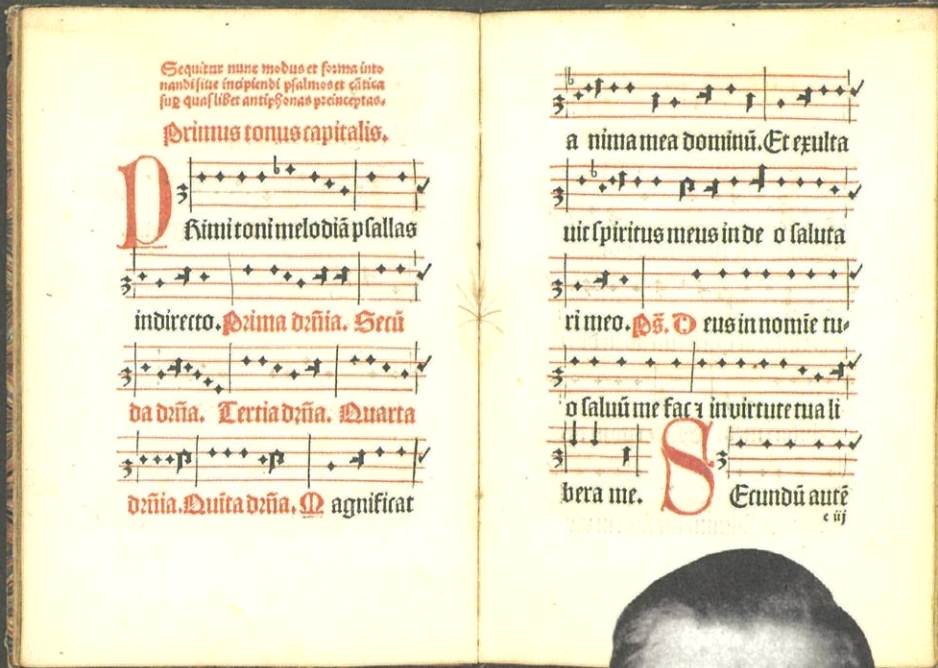 Sequitur nunc modus et forma into
nandi siue incipiendi psalmos et cãtica
sup̱ quaslibet antiphonas preinceptas.
Primus tonus capitalis.
PRimi toni melodiã psallas
in directo. Prima drñia. Secũ
da drñia. Tertia drñia. Quarta
drñia. Quĩta drñia. Magnificat
a nima mea dominũ. Et exulta
uit spiritus meus in de o saluta
ri meo. Ps̃. Deus in nomĩe tu-
o saluũ me fac ⁊ in virtute tua li
bera me. SEcundũ autẽ
c iij